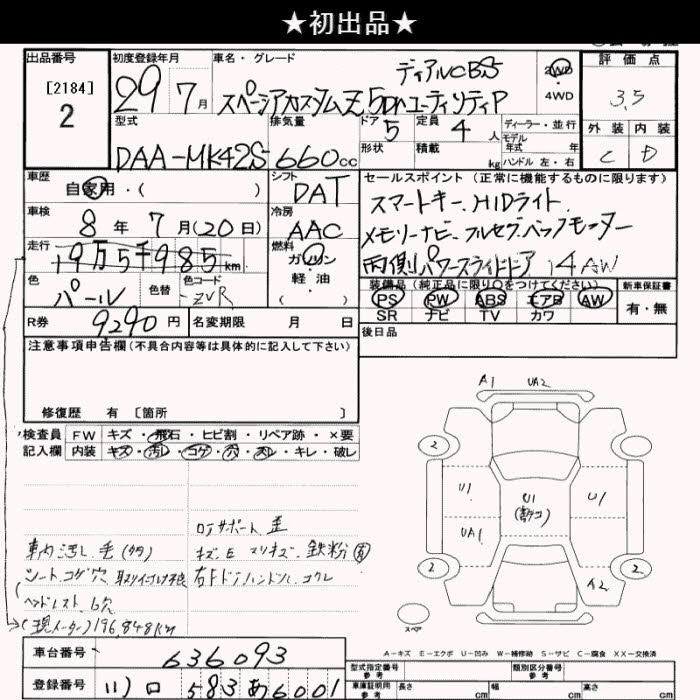 ★初出品★
出品番号 初度登録年月 車名・グレード 評価点
[2184] 29年 7月 スペーシアカスタムZ 5Dr ユーティリティP デュアルCBS 2WD 4WD 3.5
2
型式 排気量 ドア 5 定員 4人 ディーラー・並行 外装 内装
形状 積載 kg モデル年式 年式 ハンドル 左・右 C D
DAA-MK42S 660cc
車歴 シフト セールスポイント(正常に機能するものに限ります)
自家用・( ) DAT スマートキー、HIDライト
車検 冷房 メモリーナビ、フルセグ、バックモーター
8年 7月(20日) AAC 両側パワースライドドア 14AW
走行 燃料 装備品(純正品に限り○をつけてください) 新車保証書
19万5千985km ガソリン PS PW ABS エアB AW 有・無
色 色替 色コード 軽油 SR ナビ TV カワ
パール ZVR ( )
R券 9290円 名変期限 月 日 後日品
注意事項申告欄(不具合内容等は具体的に記入して下さい)
修復歴 有 [箇所 ]
A1 UA2
検査員 FW キズ・飛石・ヒビ割・リペア跡・×要
記入欄 内装 キズ・汚レ・コゲ・穴・スレ・キレ・破レ
2 2
U1 U1 U1
UA1
2 2
A2
スペア
ロアサポート 歪
車内汚し 毛(多) 鉄粉
シート コゲ穴
ヘッドレスト 穴
(現メーター)196,848Km
A-キズ E-エクボ U-凹み W-補修跡 S-サビ C-腐食 XX-交換済
車台番号 636093 型式指定番号 参考 類別区分番号 参考
登録番号 583 あ 6001 車庫証明用 参考 長さ cm 幅 cm 高さ cm